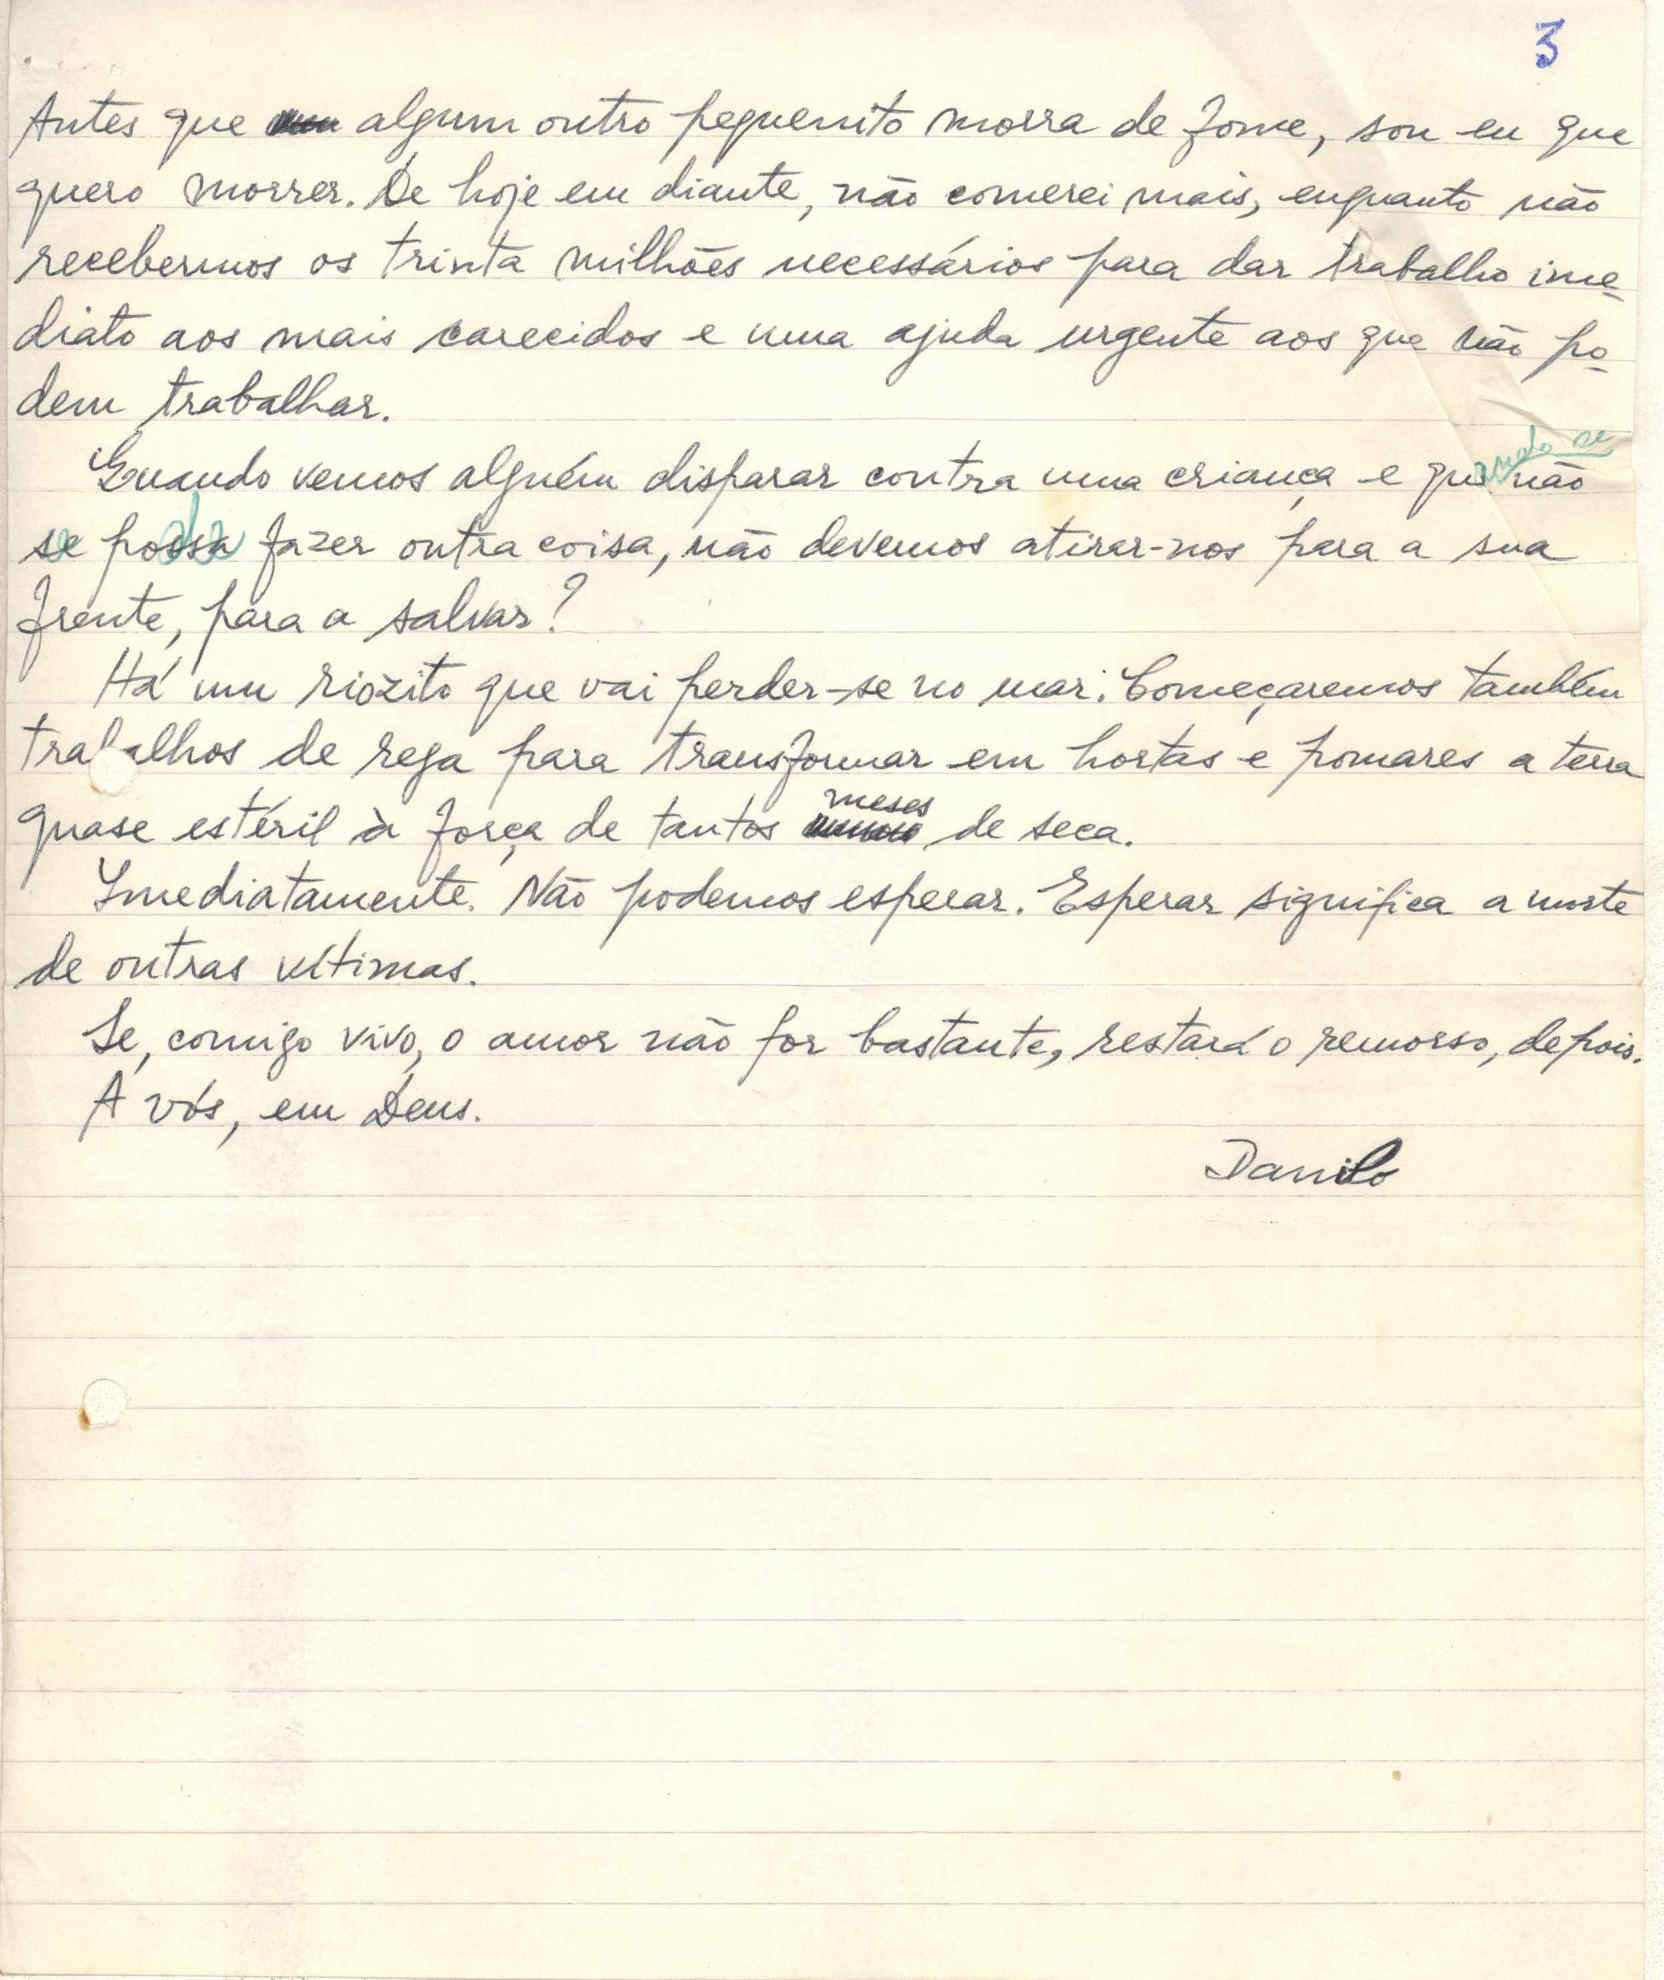 3
Antes que algum outro pequenito morra de fome, sou eu que
quero morrer. De hoje em diante, não comerei mais, enquanto não
recebermos os trinta milhões necessários para dar trabalho ime-
diato aos mais carecidos e uma ajuda urgente aos que não po-
dem trabalhar.
Quando vemos alguém disparar contra uma criança e quando se não
pode fazer outra coisa, não devemos atirar-nos para a sua
frente, para a salvar?
Há um riozito que vai perder-se no mar. Começaremos também
trabalhos de rega para transformar em hortas e pomares a terra
quase estéril à força de tantos meses de seca.
Imediatamente. Não podemos esperar. Esperar significa a morte
de outras vítimas.
Se, comigo vivo, o amor não for bastante, restará o remorso, depois.
A vós, em Deus.
Danilo